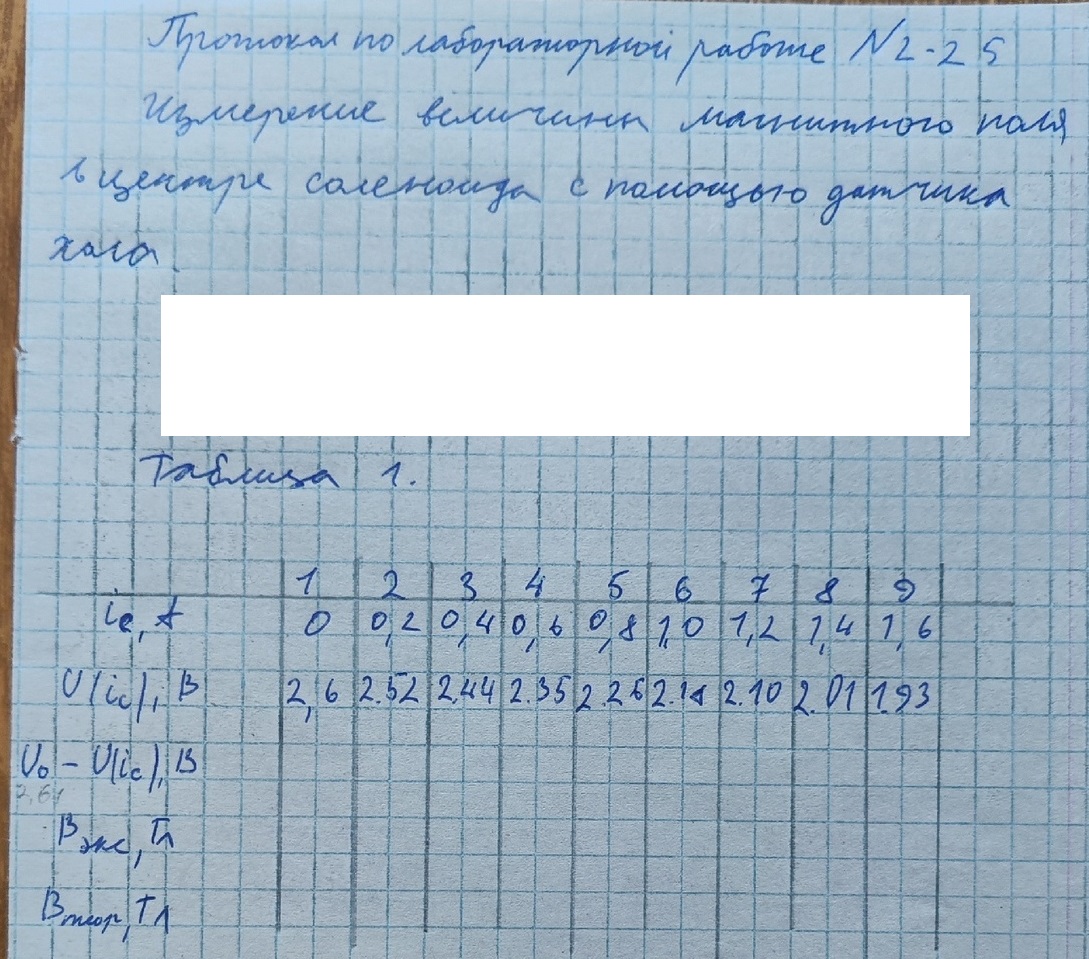 Протокол по лабораторной работе №2-25
Измерение величины магнитного поля
в центре соленоида с помощью датчика
холла
Таблица 1.
1 2 3 4 5 6 7 8 9
ic, A 0 0,2 0,4 0,6 0,8 1,0 1,2 1,4 1,6
U(ic), В 2,6 2.52 2.44 2.35 2.26 2.18 2.10 2.01 1.93
U₀ - U(ic), В
Bэкс, Тл
Bтеор, Тл